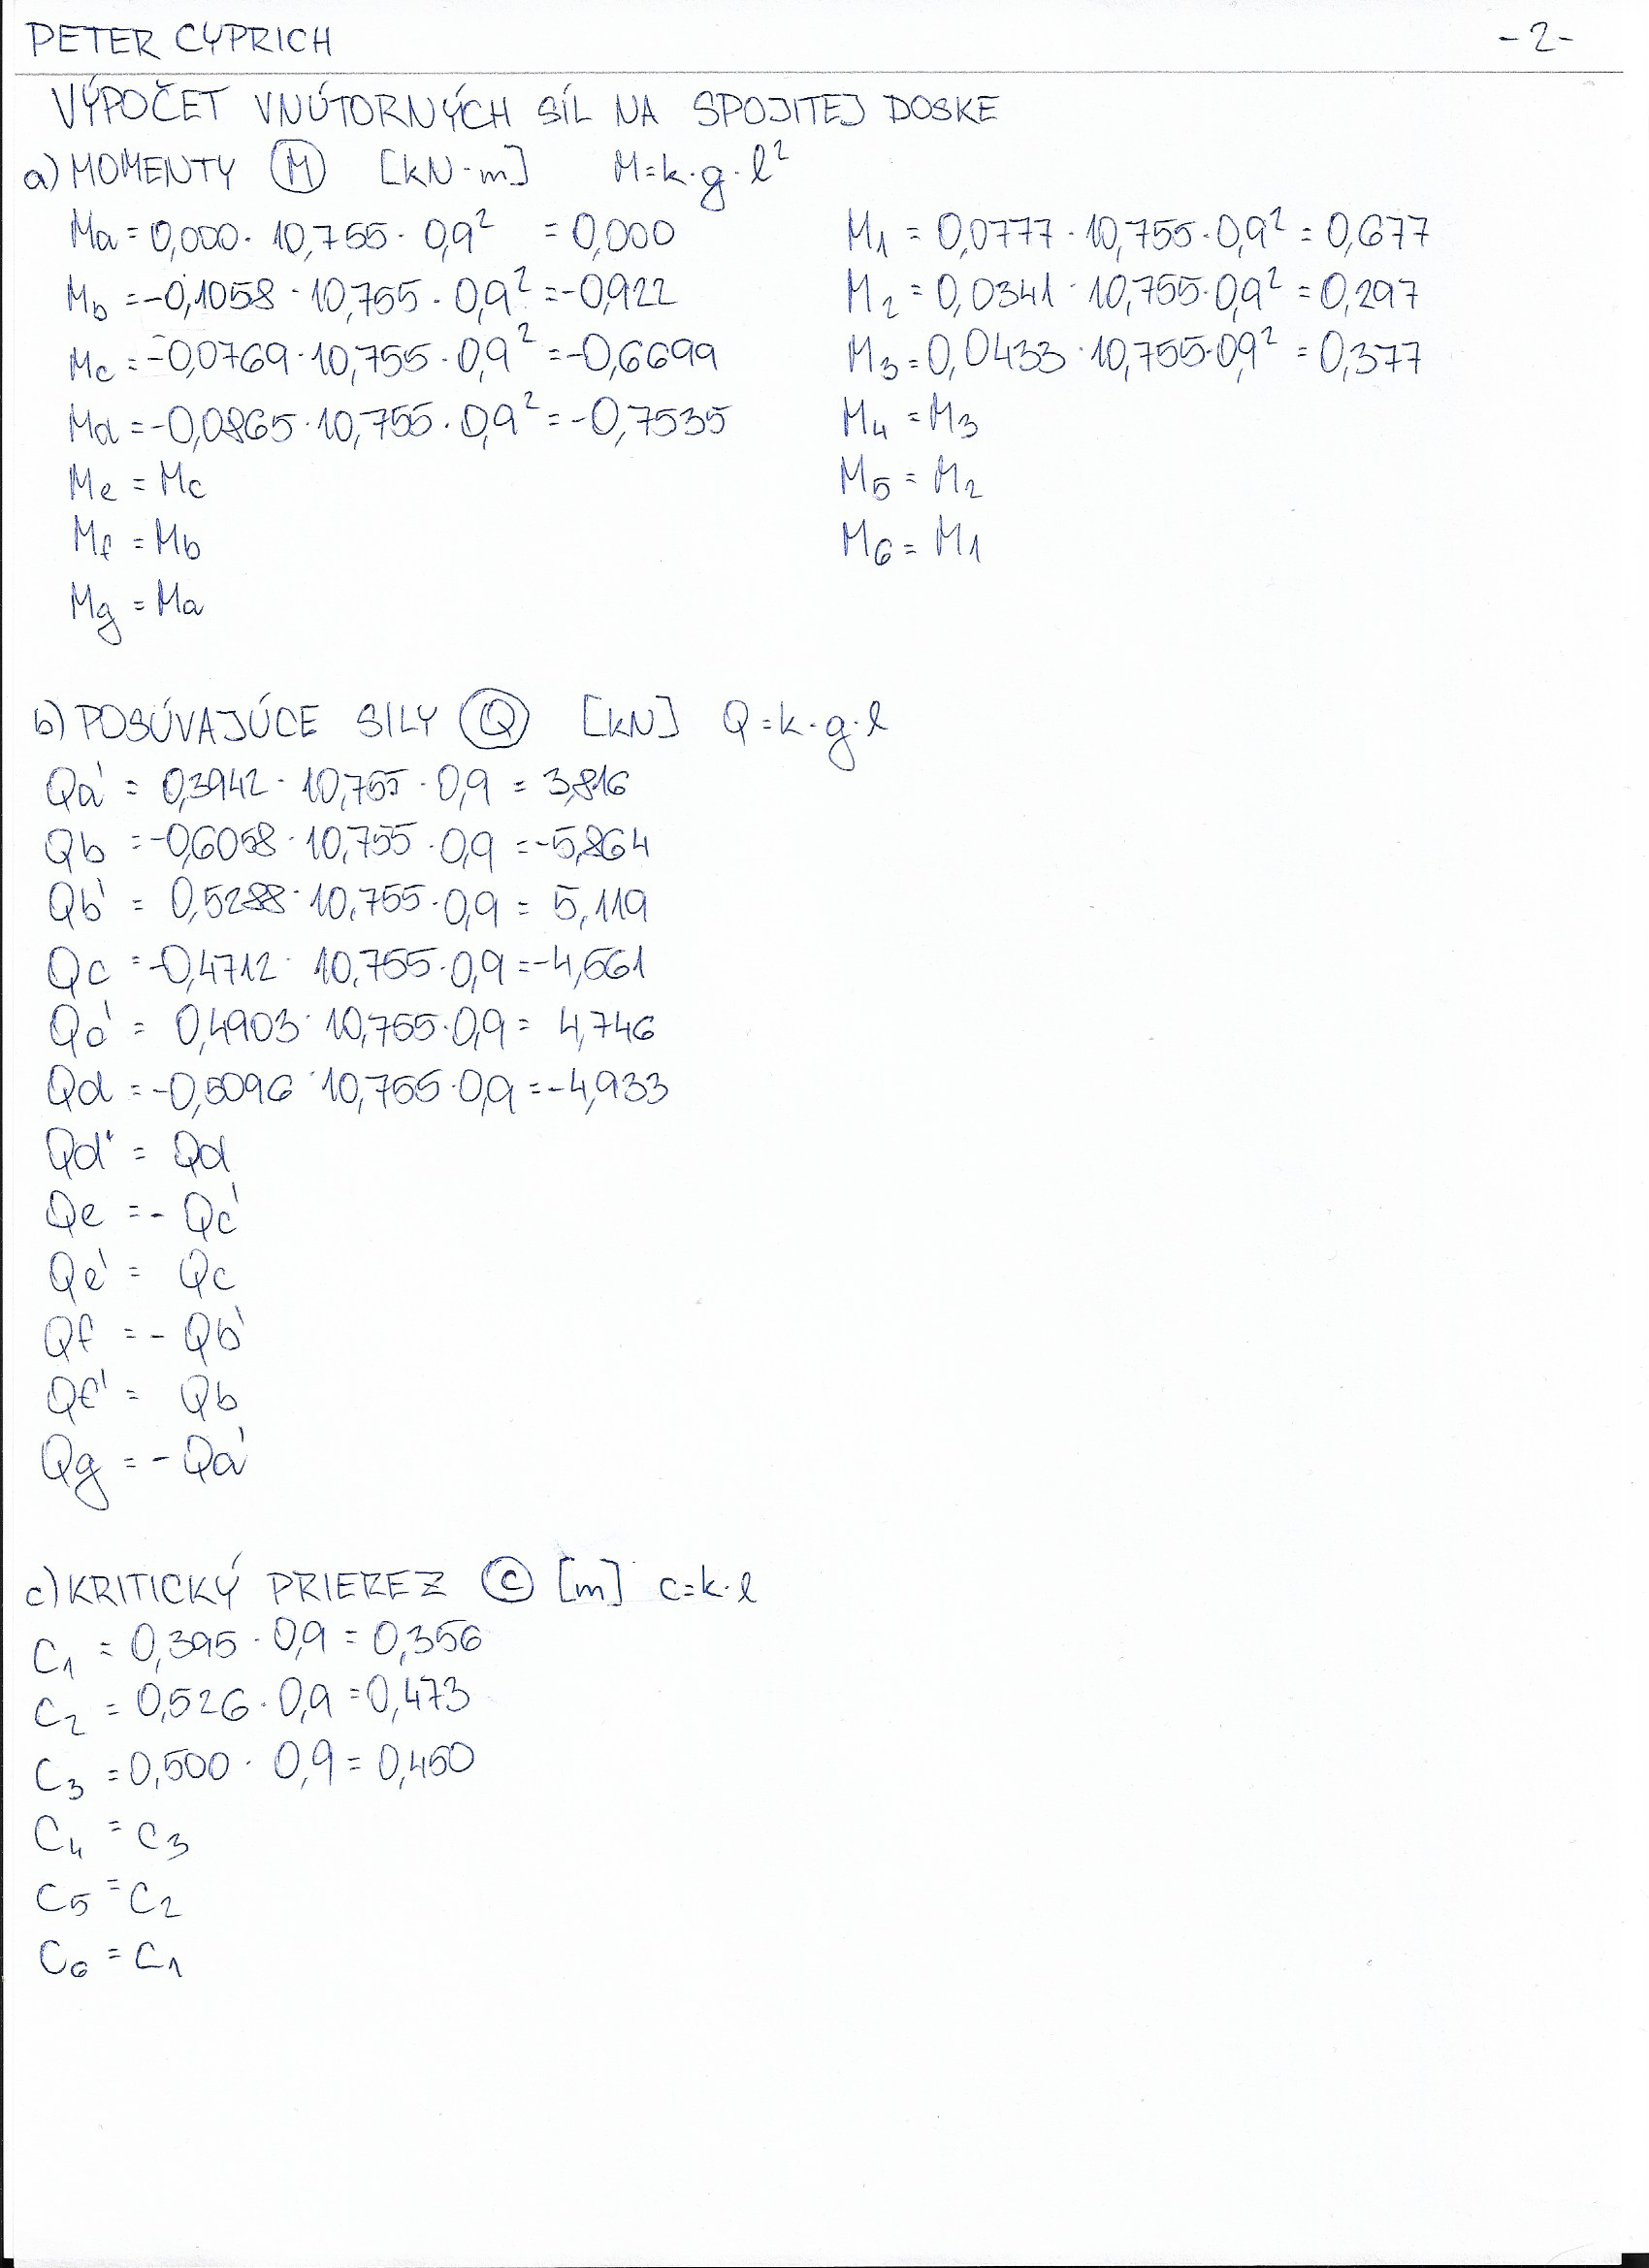 PETER CYPRICH -2-
VÝPOČET VNÚTORNÝCH SÍL NA SPOJITEJ DOSKE
a) MOMENTY M [kN·m] M=k·g·l²
Ma = 0,000 · 10,755 · 0,9² = 0,000
Mb = -0,1058 · 10,755 · 0,9² = -0,922
Mc = -0,0769 · 10,755 · 0,9² = -0,6699
Md = -0,0865 · 10,755 · 0,9² = -0,7535
Me = Mc
Mf = Mb
Mg = Ma
M1 = 0,0777 · 10,755 · 0,9² = 0,677
M2 = 0,0341 · 10,755 · 0,9² = 0,297
M3 = 0,0433 · 10,755 · 0,9² = 0,377
M4 = M3
M5 = M2
M6 = M1
b) POSÚVAJÚCE SILY Q [kN] Q=k·g·l
Qa' = 0,3942 · 10,755 · 0,9 = 3,816
Qb = -0,6058 · 10,755 · 0,9 = -5,864
Qb' = 0,5288 · 10,755 · 0,9 = 5,119
Qc = -0,4712 · 10,755 · 0,9 = -4,561
Qc' = 0,4903 · 10,755 · 0,9 = 4,746
Qd = -0,5096 · 10,755 · 0,9 = -4,933
Qd' = Qd
Qe = - Qc'
Qe' = Qc
Qf = - Qb'
Qf' = Qb
Qg = - Qa'
c) KRITICKÝ PRIEREZ C [m] C=k·l
C1 = 0,395 · 0,9 = 0,356
C2 = 0,526 · 0,9 = 0,473
C3 = 0,500 · 0,9 = 0,450
C4 = C3
C5 = C2
C6 = C1